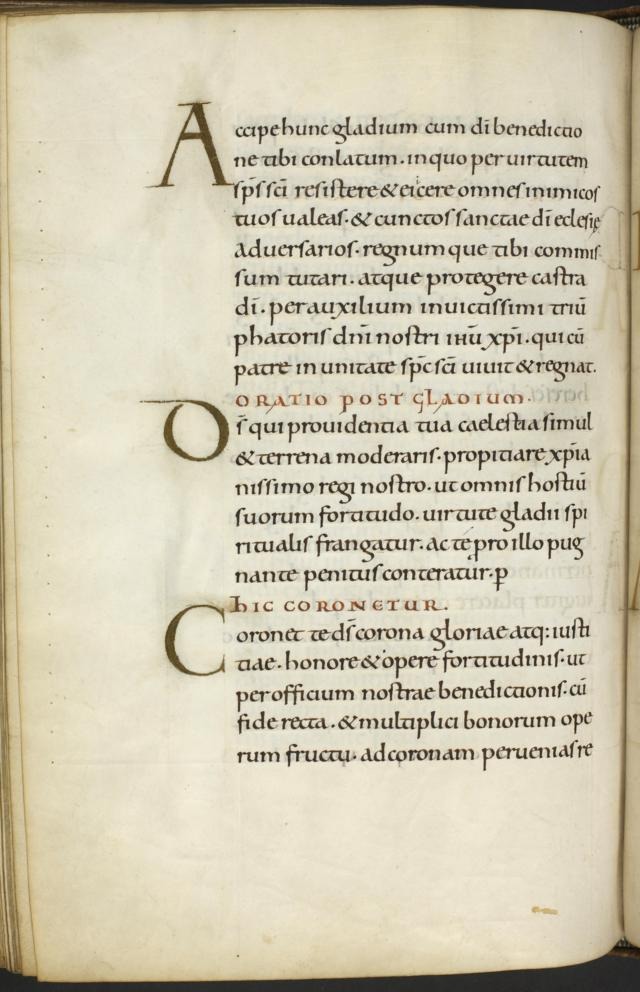 Accipe hunc gladium cum di benedictio
ne tibi conlatum. in quo per uirtutem
sps sci resistere & eicere omnes inimicos
tuos ualeas. & cunctos sanctae di eclesię
adversarios. regnum que tibi commis
sum tutari. atque protegere castra
di. per auxilium inuictissimi triū
phatoris dni nostri ihu xpi. qui cū
patre in unitate spc sci uiuit & regnat.
ORATIO POST GLADIUM.
Ds qui prouidentia tua caelestia simul
& terrena moderaris. propitiare xpia
nissimo regi nostro. ut omnis hostiū
suorum fortitudo. uirtute gladii spi
ritualis frangatur. ac te pro illo pug
nante penitus conteratur. p
hIC CORONETUR.
Coronet te ds corona gloriae atq: iusti
tiae. honore & opere fortitudinis. ut
per officium nostrae benedictionis. cū
fide recta. & multiplici bonorum ope
rum fructu. ad coronam peruenias re